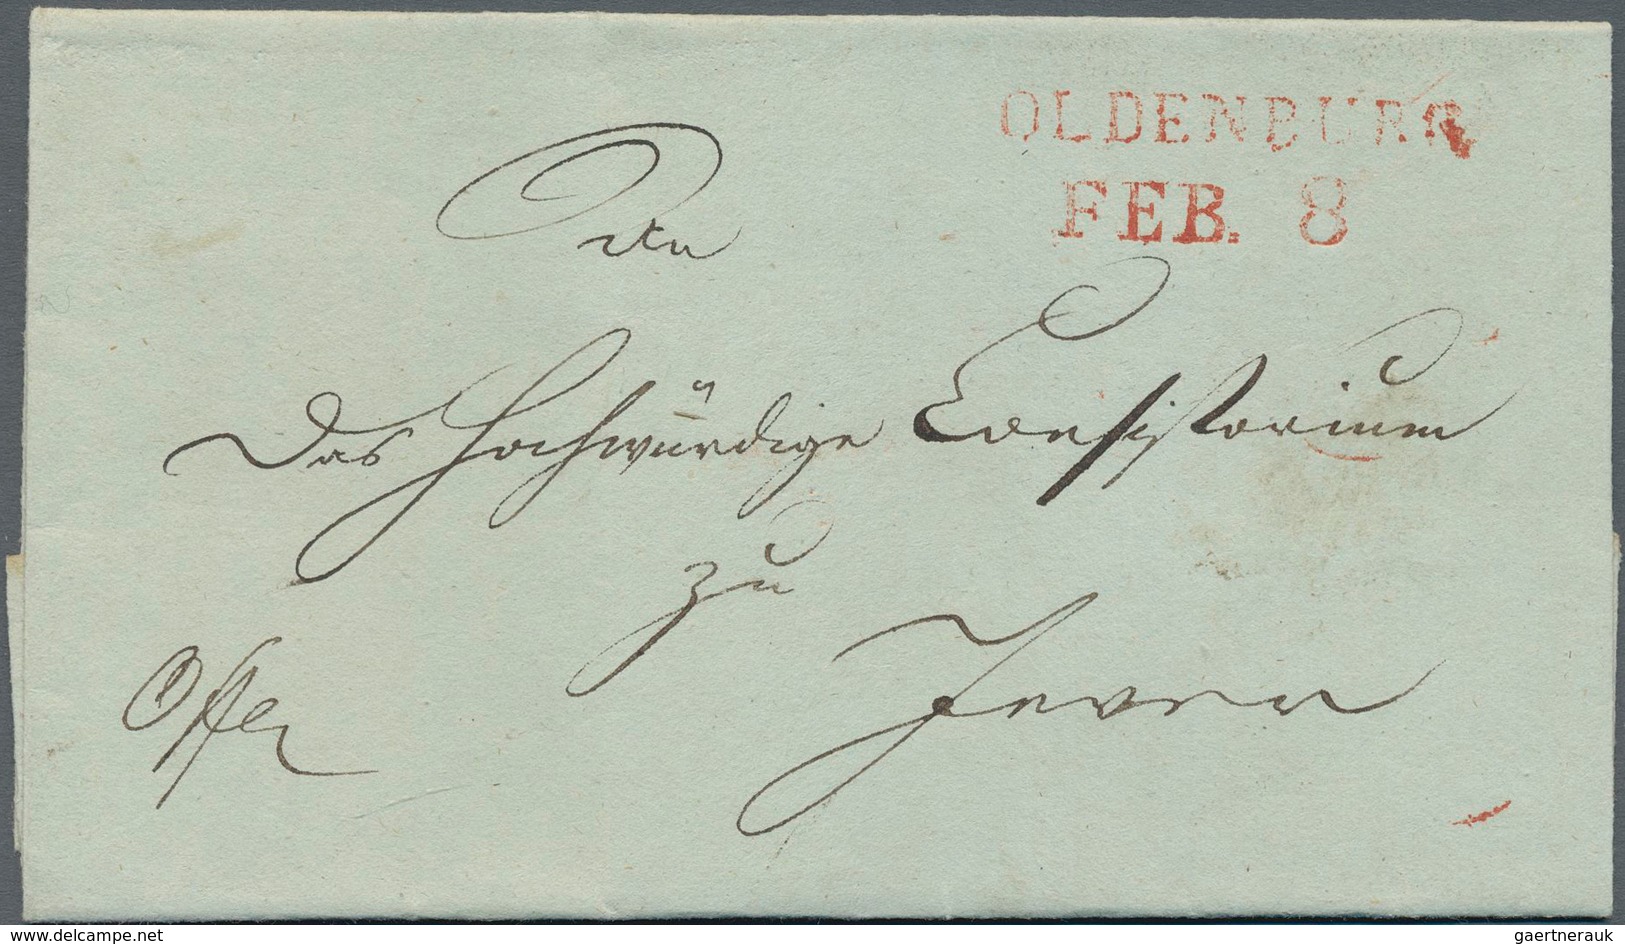 OLDENBURG
FEB. 8
An
das Hochwürdige Consistorium
zu
Jever
www.delcampe.net
gaertnerauk